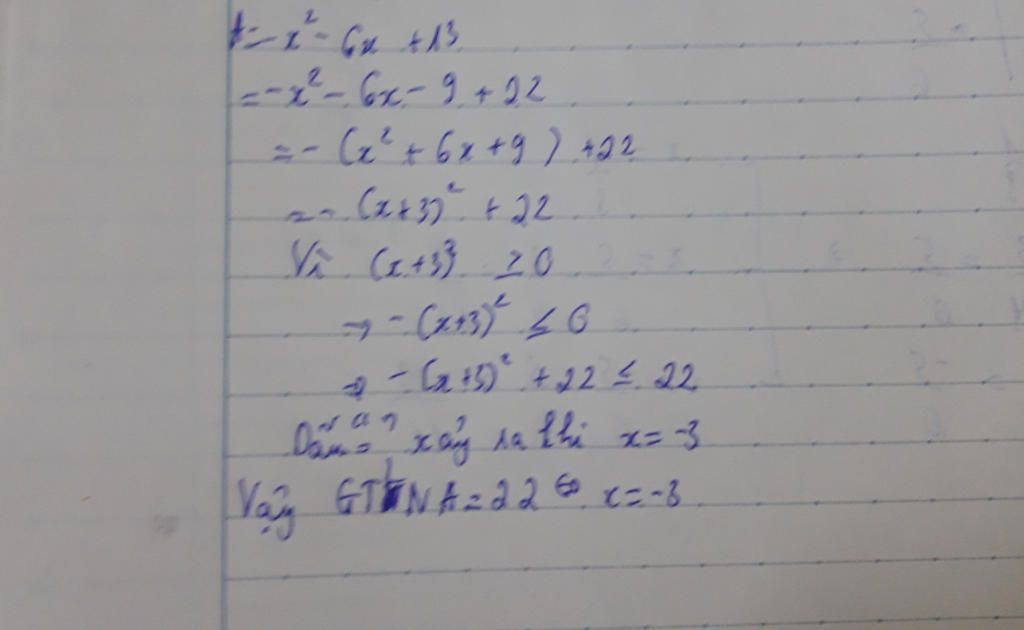 A = -x² - 6x + 13
= -x² - 6x - 9 + 22
= - (x² + 6x + 9) + 22
= - (x+3)² + 22
Vì (x+3)² ≥ 0
⇒ - (x+3)² ≤ 0
⇒ - (x+3)² + 22 ≤ 22
Dấu "=" xảy ra khi x = -3
Vậy GTLN A = 22 ⇔ x = -3